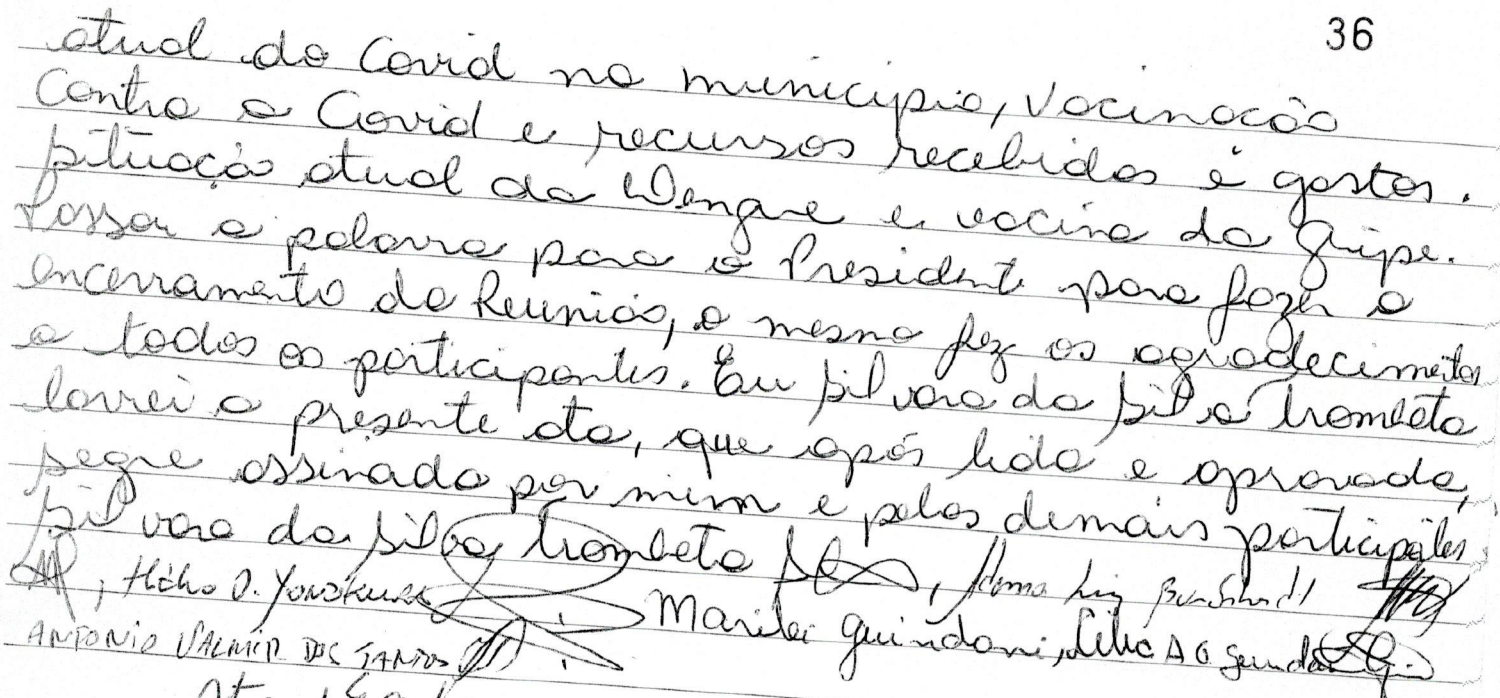 36
atual do Covid no município, Vacinação
Contra a Covid e recursos recebidos e gastos.
Situação atual da Dengue e vacina da Gripe.
Passou a palavra para o Presidente para fazer o
encerramento da Reunião, o mesmo fez os agradecimentos
a todos os participantes. Eu Silvana da Silva Trombeta
lavrei a presente ata, que após lida e aprovada,
segue assinada por mim e pelos demais participantes
Silvana da Silva Trombeta
, Hélio O.
Marilei Guindani, Célia A G
ANTONIO VALMIR DOS SANTOS